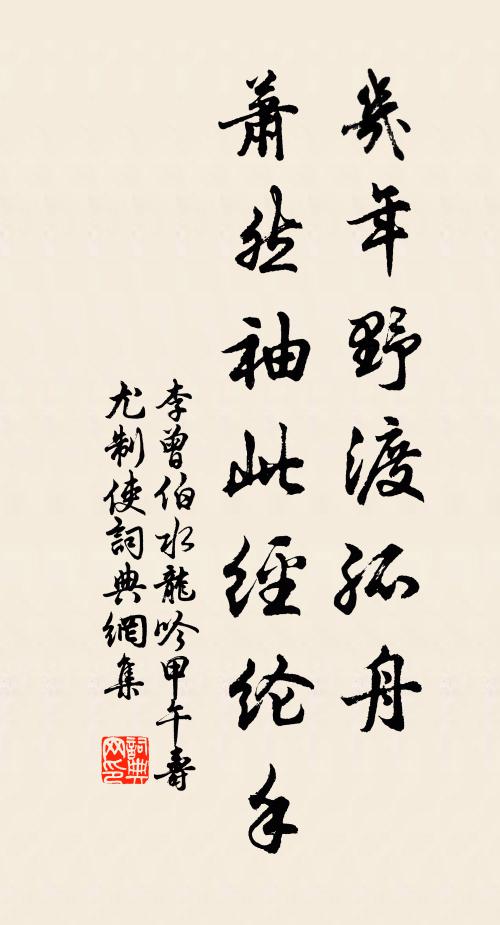 幾年野渡孤舟
蕭然袖此經綸手
李曾伯水龍吟甲午壽
尤制使詞典網集
詞典網印